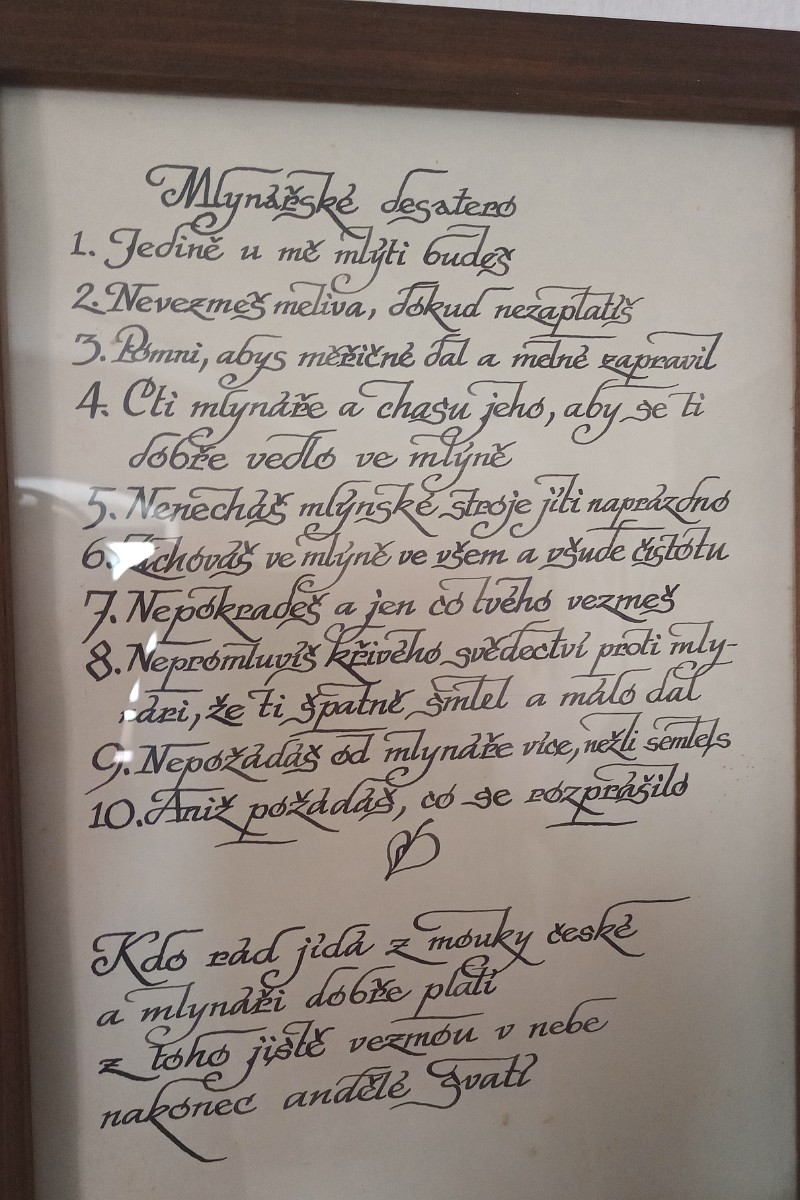 Mlynářské desatero
1. Jedině u mě mlýti budeš
2. Nevezmeš meliva, dokud nezaplatíš
3. Pomni, abys měřičné dal a melné zapravil
4. Cti mlynáře a chasu jeho, aby se ti
dobře vedlo ve mlýně
5. Nenecháš mlýnské stroje jíti naprázdno
6. Zachováš ve mlýně ve všem a všude čistotu
7. Nepokradeš a jen co tvého vezmeš
8. Nepromluvíš křivého svědectví proti mly-
náři, že ti špatně šmlel a málo dal
9. Nepožádáš od mlynáře více, nežli semlels
10. Aniž požádáš, co se rozprášilo
Kdo rád jídá z mouky české
a mlynáři dobře platí
z toho jistě vezmou v nebe
nakonec andělé svatí